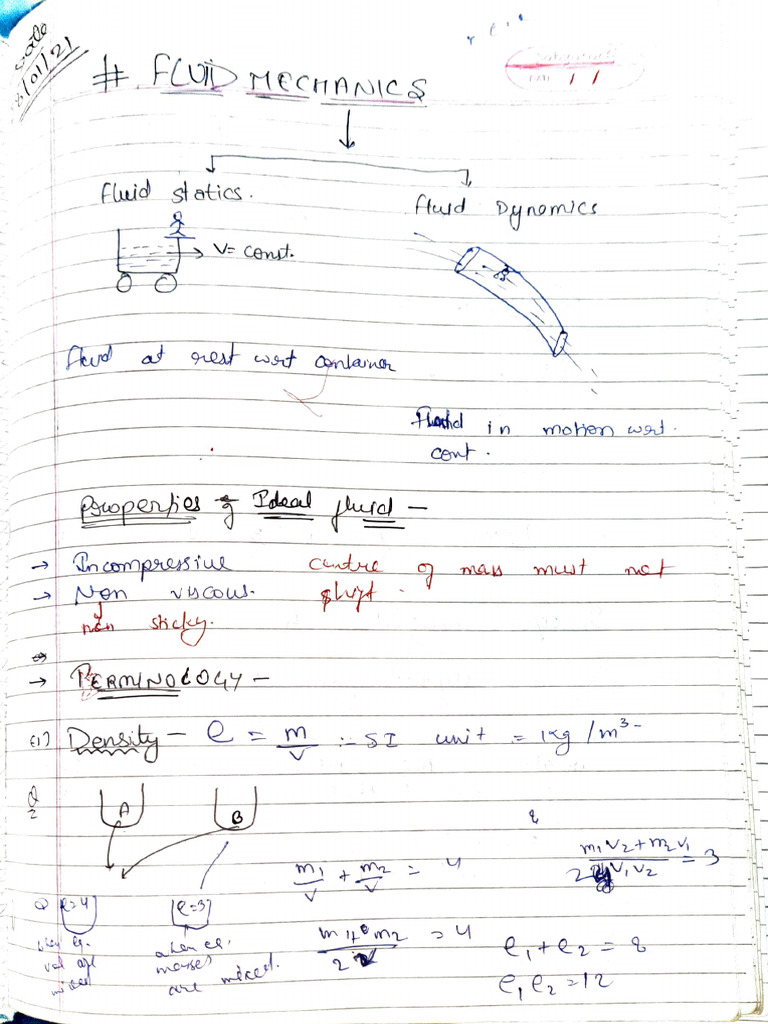 Date
# FLUID MECHANICS
Fluid statics.
Fluid Dynamics
V = const.
Fluid at rest wrt container
Fluid in motion wrt.
cont.
Properties of Ideal fluid -
→ Incompressive centre of mass must not
→ Non viscous. shift.
non sticky.
→ TERMINOLOGY -
(1) Density - ρ = m/V :- SI unit = kg/m³
Q
A B
m₁/V + m₂/V = 4
m₁V₂ + m₂V₁ / 2V₁V₂ = 3
Q ρ=4 ρ=3
when eq. vol are mixed
when eq. masses are mixed.
m₁ + m₂ / 2V = 4
ρ₁ + ρ₂ = 8
ρ₁ρ₂ = 12